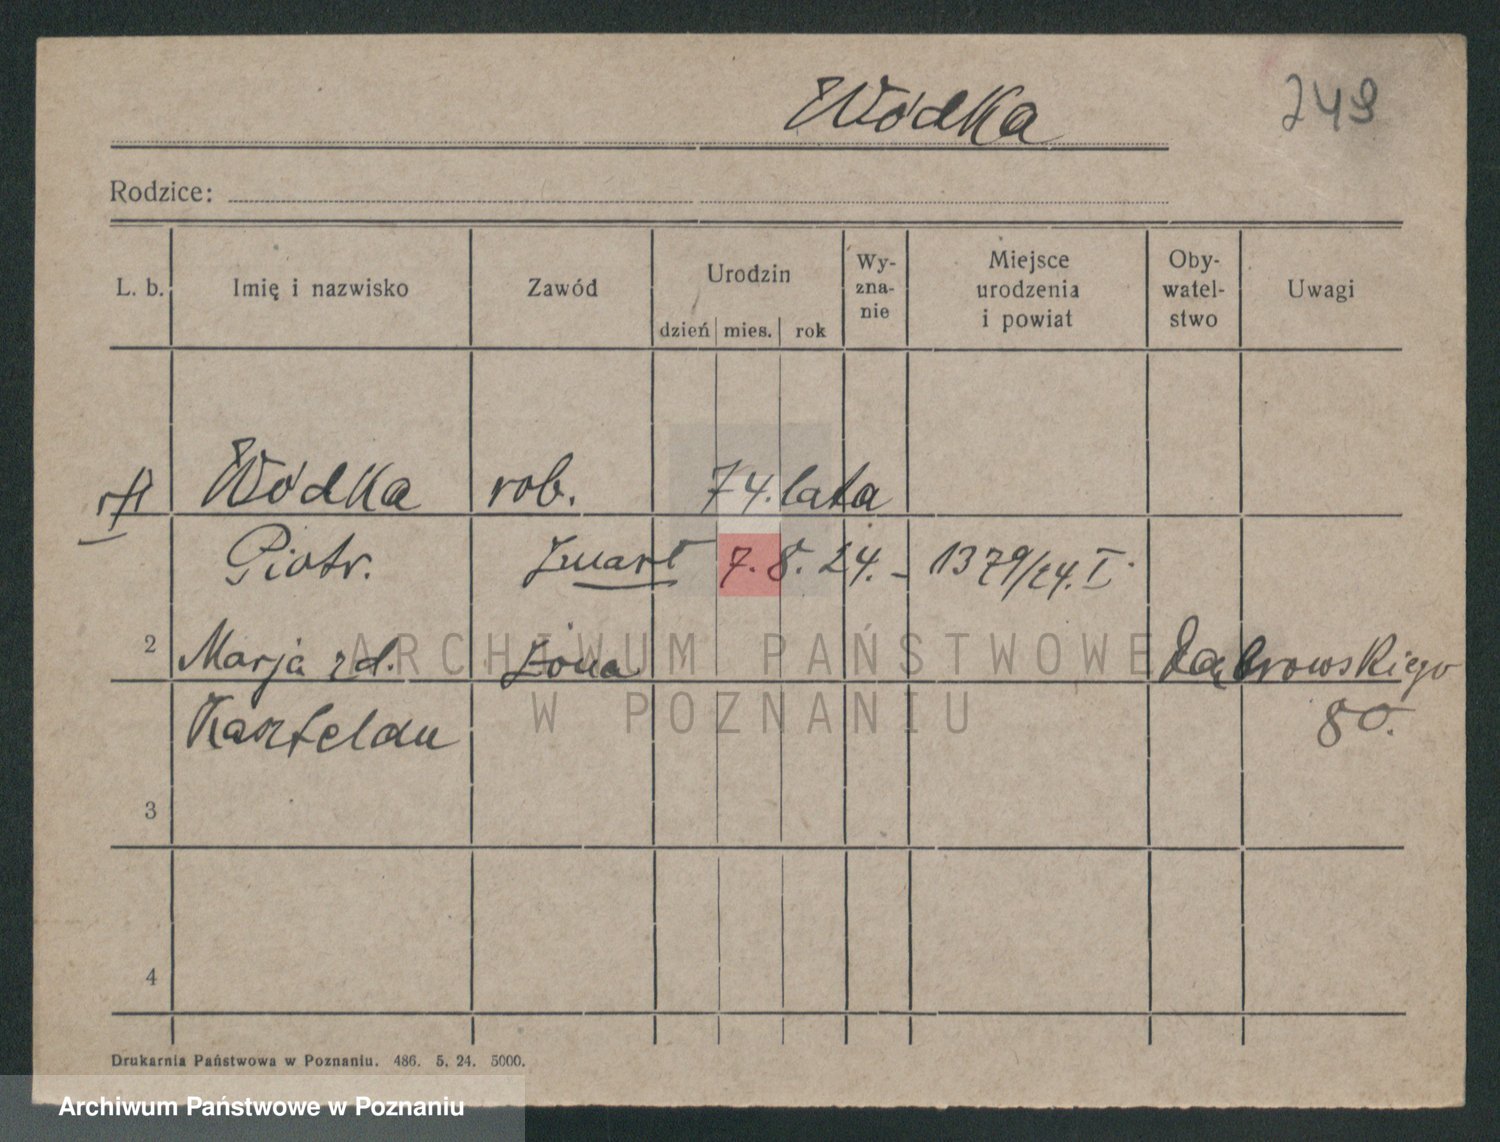 Wódka
249
Rodzice:
L. b. Imię i nazwisko Zawód Urodzin dzień mies. rok Wy-zna-nie Miejsce urodzenia i powiat Oby-watel-stwo Uwagi
Wódka rob. 74. lata
Piotr. Zmarł 7. 8. 24. - 1379/24. I.
2 Marja zd. Żona Dąbrowskiego
80.
3
4
Drukarnia Państwowa w Poznaniu. 486. 5. 24. 5000.
ARCHIWUM PAŃSTWOWE
W POZNANIU
Archiwum Państwowe w Poznaniu